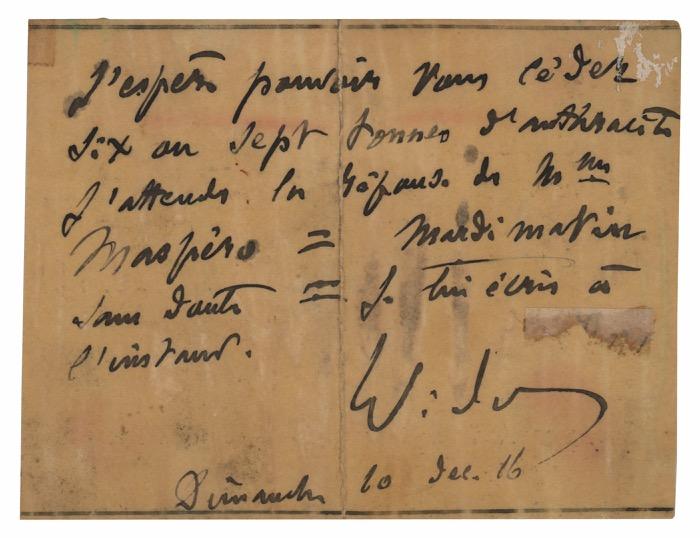 J'espère pouvoir vous céder
six ou sept tonnes d'anthracite
J'attends la réponse de Mme
Maspéro = Mardi matin
sans doute = Je lui écris à
l'instant.
Widor
Dimanche 10 dec. 16